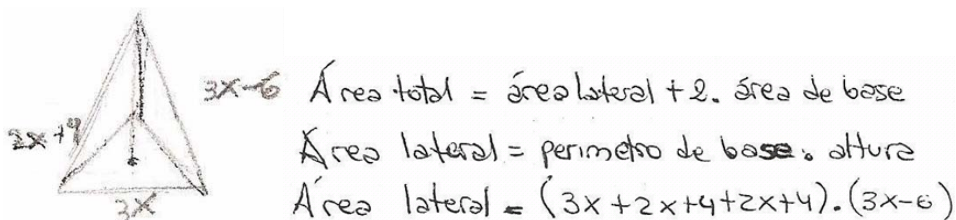 3x-6
2x+4
3x
Área total = área lateral + 2. área de base
Área lateral = perimetro de base. altura
Área lateral = (3x+2x+4+2x+4).(3x-6)